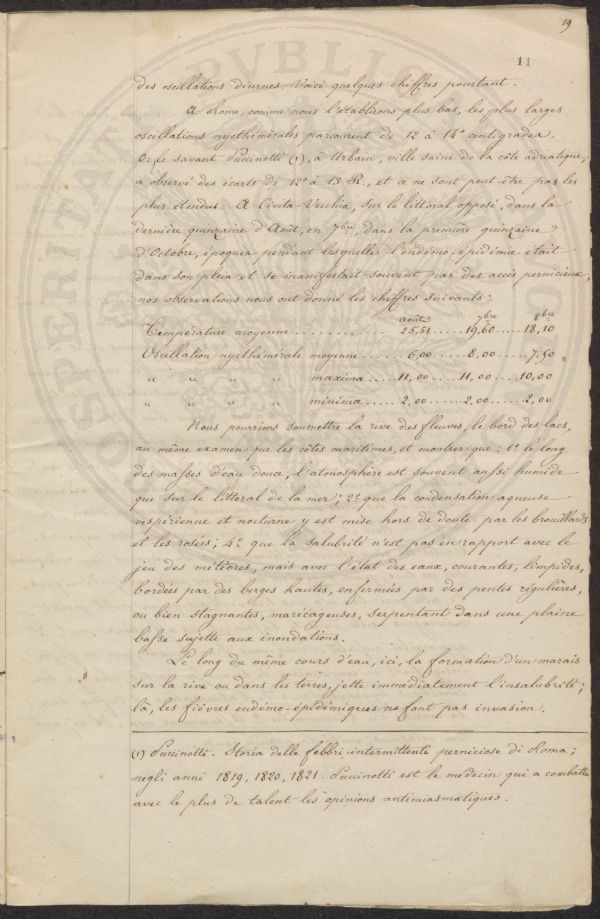 19
11
des oscillations diurnes. Voici quelques chiffres pourtant.
A Rome, comme nous l'établirons plus bas, les plus larges
oscillations nyethémérales parcourent de 12 à 14° centigrades.
Or le savant Puccinotti (1), à Urbain, ville saine de la côte adriatique,
a observé des écarts de 12° à 13 R., et ce ne sont peut-être pas les
plus étendus. A Civita-Vecchia, sur le littoral opposé, dans la
dernière quinzaine d'Août, en 7bre, dans la première quinzaine
d'Octobre, époques pendant lesquelles l'endémo-épidémie était
dans son plein et se manifestait souvent par des accès pernicieux,
nos observations nous ont donné les chiffres suivants:
août 7bre 8bre
Température moyenne ............ 25,51 ..... 19,60 ..... 18,10
Oscillation nyethémérale moyenne ...... 6,00 ..... 8,00 ..... 7,50
" " " " maxima ..... 11,00 ..... 11,00 ..... 10,00
" " " " minima ..... 2,00 ..... 2,00 ..... 2,00
Nous pourrions soumettre la rive des fleuves, le bord des lacs,
au même examen que les côtes maritimes, et montrer que: 1° le long
des masses d'eau douce, l'atmosphère est souvent aussi humide
que sur le littoral de la mer; 2° que la condensation aqueuse
vespérienne et nocturne y est mise hors de doute par les brouillards
et les rosées; 4° que la salubrité n'est pas en rapport avec le
jeu des météores, mais avec l'état des eaux, courantes, limpides,
bordées par des berges hautes, enfermées par des pentes régulières,
ou bien stagnantes, marécageuses, serpentant dans une plaine
basse sujette aux inondations.
Le long du même cours d'eau, ici, la formation d'un marais
sur la rive ou dans les terres, jette immédiatement l'insalubrité;
là, les fièvres endémo-épidémiques ne font pas invasion.
(1) Puccinotti. Storia delle febbri intermittenti perniciose di Roma;
negli anni 1819, 1820, 1821. Puccinotti est le médecin qui a combattu
avec le plus de talent les opinions antimiasmatiques.